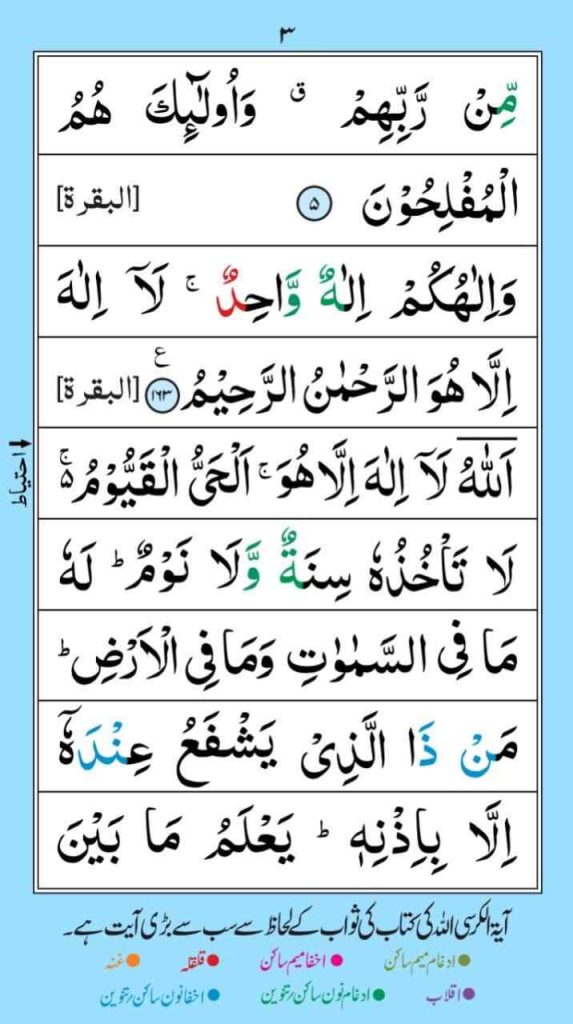 ۳
مِّنْ رَّبِّهِمْ ۙق وَاُولٰٓئِكَ هُمُ
الْمُفْلِحُوْنَ ۵ [البقرة]
وَاِلٰهُكُمْ اِلٰهٌ وَّاحِدٌ ۚ لَآ اِلٰهَ
اِلَّا هُوَ الرَّحْمٰنُ الرَّحِيْمُ ۱۶۳ ع [البقرة]
اَللّٰهُ لَآ اِلٰهَ اِلَّا هُوَ ۚ اَلْحَيُّ الْقَيُّوْمُ ۵ۚ
احتیاط
لَا تَاْخُذُهٗ سِنَةٌ وَّلَا نَوْمٌ ؕ لَهٗ
مَا فِي السَّمٰوٰتِ وَمَا فِي الْاَرْضِ ؕ
مَنْ ذَا الَّذِيْ يَشْفَعُ عِنْدَهٗٓ
اِلَّا بِاِذْنِهٖ ؕ يَعْلَمُ مَا بَيْنَ
آیۃ الکرسی اللہ کی کتاب کی ثواب کے لحاظ سے سب سے بڑی آیت ہے۔
ادغام میم ساکن اخفا میم ساکن قلقلہ غنہ
اقلاب ادغام نون ساکن/تنوین اخفا نون ساکن/تنوین